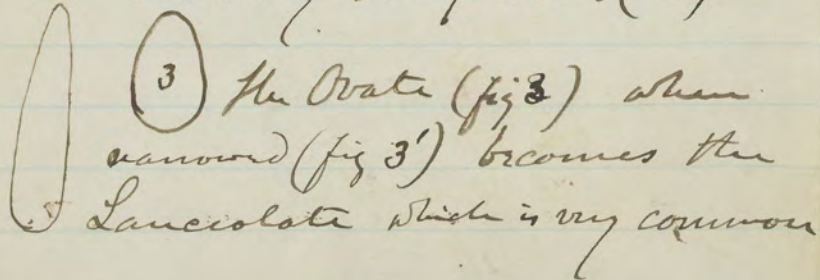 3 The Ovate (fig 3) when
narrowed (fig 3') becomes the
Lanceolate which is very common